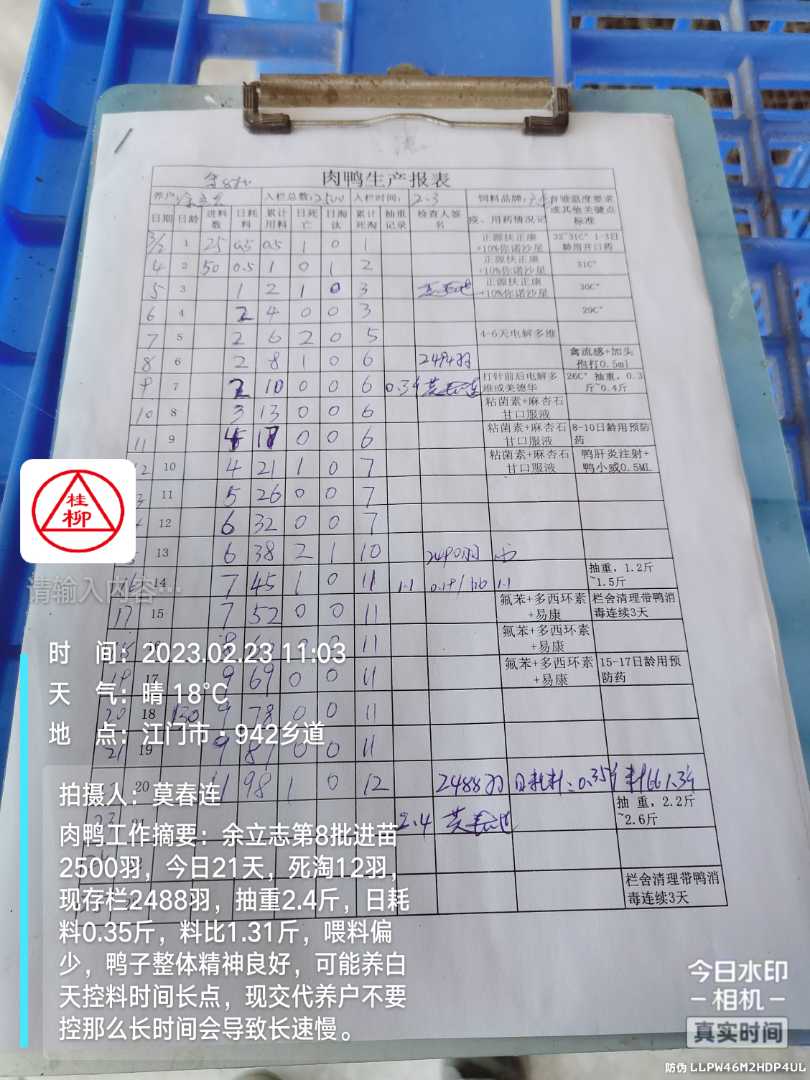 肉鸭生产报表
养户
入栏总数:2500
入栏时间: 2.3
饲料品牌:
育雏温度要求或其他关键点标准
日期 日龄 进料数 日耗料 累计用料 日死亡 日淘汰 累计死淘 抽重记录 检查人签名 疫、用药情况记
3/2 1 25 0.5 0.5 1 0 1 正源扶正康+10%你诺沙星 32~31C° 1-3日龄用开口药
4 2 50 0.5 1 0 1 2 正源扶正康+10%你诺沙星 31C°
5 3 1 2 1 0 3 正源扶正康+10%你诺沙星 30C°
6 4 2 4 0 0 3 29C°
7 5 2 6 2 0 5 4-6天电解多维
8 6 2 8 1 0 6 2494羽 禽流感+加头孢打0.5ml
9 7 2 10 0 0 6 打针前后电解多维或美德华 26C° 抽重，0.3斤~0.4斤
10 8 3 13 0 0 6 粘菌素+麻杏石甘口服液
11 9 4 17 0 0 6 粘菌素+麻杏石甘口服液 8-10日龄用预防药
12 10 4 21 1 0 7 粘菌素+麻杏石甘口服液 鸭肝炎注射+鸭小威0.5ML
11 5 26 0 0 7
12 6 32 0 0 7
13 6 38 2 1 10 2490羽
16 14 7 45 1 0 11 1.1 1.1 抽重，1.2斤~1.5斤
17 15 7 52 0 0 11 氟苯+多西环素+易康 栏舍清理带鸭消毒连续3天
0 0 11 氟苯+多西环素+易康
19 17 9 69 0 0 11 氟苯+多西环素+易康 15-17日龄用预防药
20 18 150 9 78 0 0 11
21 19 9 87 0 0 11
20 11 98 1 0 12 2488羽 日耗料:0.35斤 料比1.31斤
2.4 抽重，2.2斤~2.6斤
栏舍清理带鸭消毒连续3天
桂柳
请输入内容…
时 间：2023.02.23 11:03
天 气：晴 18℃
地 点：江门市·942乡道
拍摄人：莫春连
肉鸭工作摘要：余立志第8批进苗
2500羽，今日21天，死淘12羽，
现存栏2488羽，抽重2.4斤，日耗
料0.35斤，料比1.31斤，喂料偏
少，鸭子整体精神良好，可能养白
天控料时间长点，现交代养户不要
控那么长时间会导致长速慢。
今日水印
相机
真实时间
防伪 LLPW46M2HDP4UL